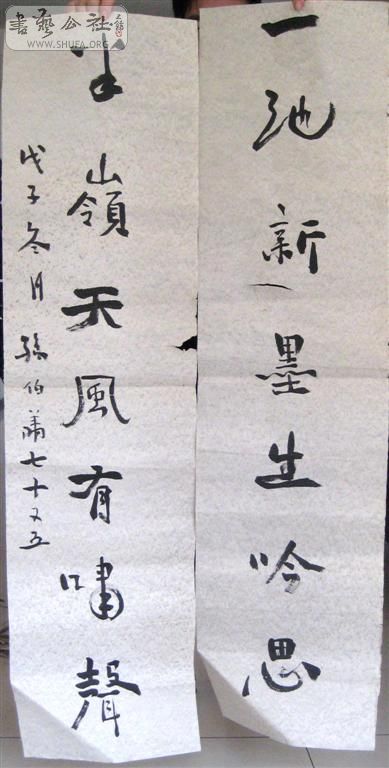 書藝公社
WWW.SHUFA.ORG
一池新墨生吟思
半嶺天風有嘯聲
戊子冬月張伯簫七十又五